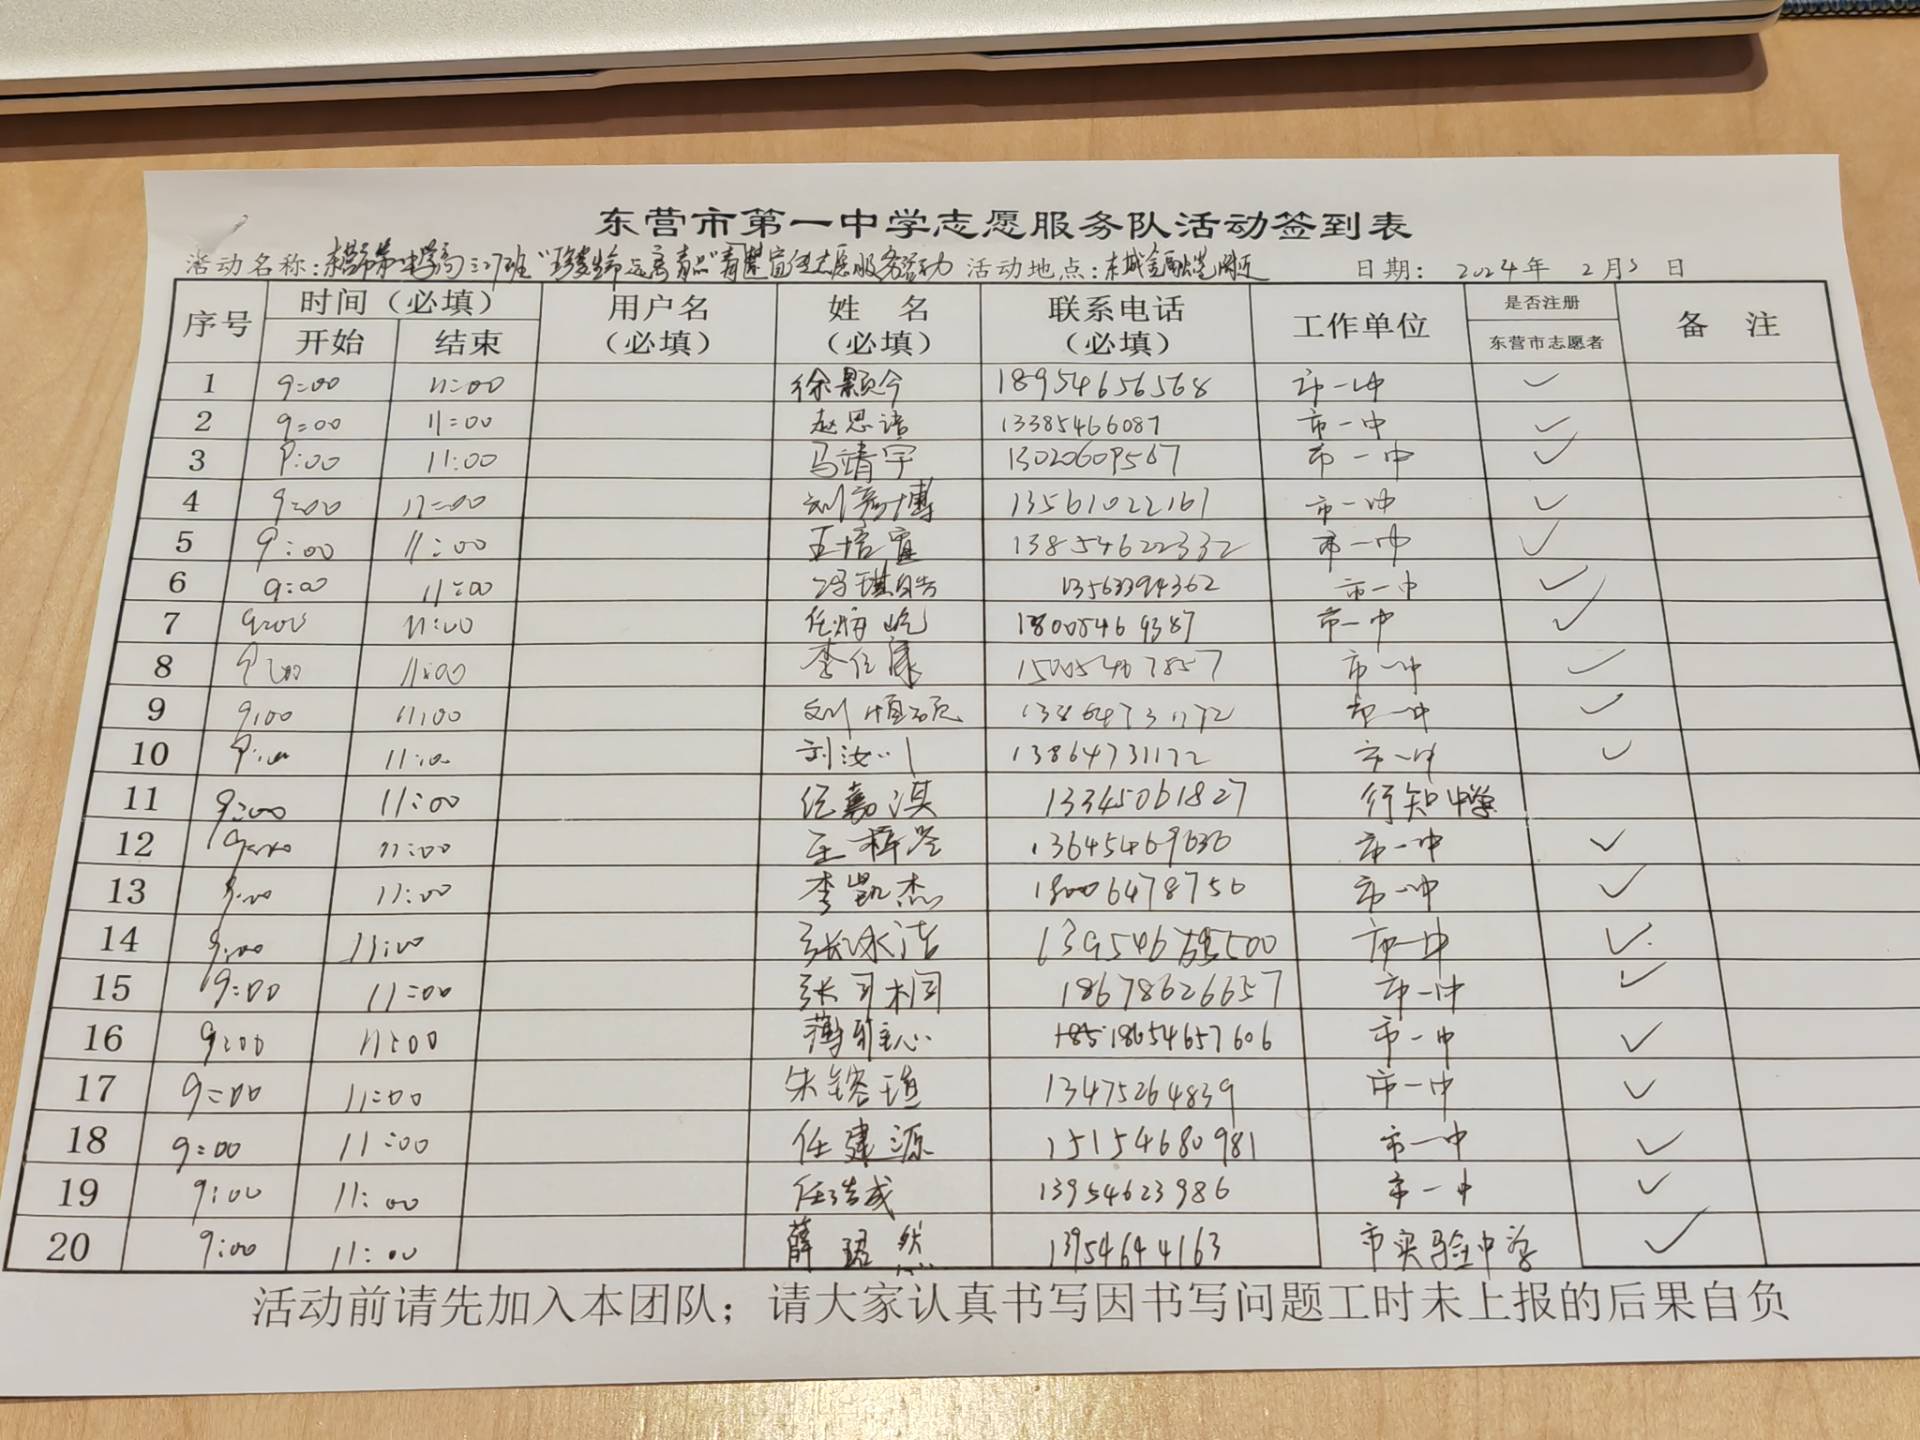 东营市第一中学志愿服务队活动签到表
活动名称：东营市第一中学高三27班“珍爱生命 远离毒品”禁毒宣传志愿服务活动 活动地点：东城金融港附近 日期： 2024年 2月3日
序号 时间（必填） 用户名（必填） 姓 名（必填） 联系电话（必填） 工作单位 是否注册 备 注
开始 结束 东营市志愿者
1 9:00 11:00 徐颢今 18954656568 市一中 ✓
2 9:00 11:00 赵思语 13385466087 市一中 ✓
3 9:00 11:00 马靖宇 13020609567 市一中 ✓
4 9:00 11:00 刘彦博 13561022161 市一中 ✓
5 9:00 11:00 王培宜 13854622332 市一中 ✓
6 9:00 11:00 冯琪皓 13563394362 市一中 ✓
7 9:00 11:00 任炳屹 18005469387 市一中 ✓
8 9:00 11:00 李任康 15005467857 市一中 ✓
9 9:00 11:00 刘恒硕 13864731172 市一中 ✓
10 9:00 11:00 刘汝川 13864731172 市一中 ✓
11 9:00 11:00 任嘉淇 13345061827 行知中学
12 9:00 11:00 王梓 13645469636 市一中 ✓
13 9:00 11:00 李凯杰 18006478756 市一中 ✓
14 9:00 11:00 张冰洁 市一中 ✓
15 9:00 11:00 张可桐 18678626657 市一中 ✓
16 9:00 11:00 薄雅心 185 18654657606 市一中 ✓
17 9:00 11:00 朱镕瑄 13475264839 市一中 ✓
18 9:00 11:00 任建源 15154680981 市一中 ✓
19 9:00 11:00 任浩成 13954623986 市一中 ✓
20 9:00 11:00 薛珺然 13954644163 市实验中学 ✓
活动前请先加入本团队；请大家认真书写因书写问题工时未上报的后果自负